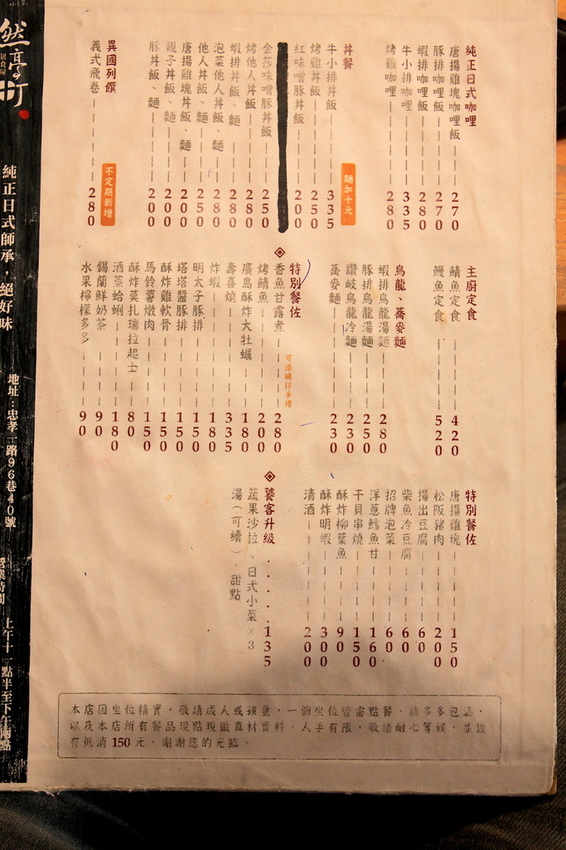 純正日式咖哩
唐揚雞塊咖哩飯 270
豚排咖哩飯 270
蝦排咖哩飯 280
牛小排咖哩 335
烤雞咖哩 280
丼餐
麵加十元
牛小排丼飯 335
烤雞丼飯 250
紅味噌豚丼飯 200
金莎味噌豚丼飯 250
烤他人丼飯 280
蝦排丼飯、麵 280
泡菜他人丼飯、麵 280
他人丼飯、麵 250
唐揚雞塊丼飯、麵 200
親子丼飯、麵 200
豚丼飯、麵 200
異國列饌
不定期新增
義式飛卷 280
主廚定食
鯖魚定食 420
鰻魚定食 520
烏龍、蕎麥麵
蝦排烏龍湯麵 280
豚排烏龍湯麵 250
讚岐烏龍冷麵 230
蕎麥麵 230
特別餐佐
香魚甘露煮 280
烤鯖魚 200
廣島酥炸大牡蠣 180
壽喜燒 335
炸蝦 180
明太子豚排 150
塔塔醬豚排 150
酥炸雞軟骨 150
馬鈴薯燉肉 150
酥炸莫扎瑞拉起士 80
酒蒸蛤蜊 180
錫蘭鮮奶茶 90
水果檸檬多多 90
特別餐佐
唐揚雞塊 150
松阪豬肉 200
揚出豆腐 60
柴魚冷豆腐 60
招牌泡菜 60
洋蔥鱈魚甘 160
干貝串燒 150
酥炸柳葉魚 90
酥炸明蝦 300
清酒 200
饕客升級 135
蔬果沙拉、日式小菜×3
湯（可續）、甜點
有低消150元，謝謝您的光臨。
然亭町
純正日式師承，絕好味
地址：忠孝一路96巷40號
營業時間 上午十一點半至下午兩點